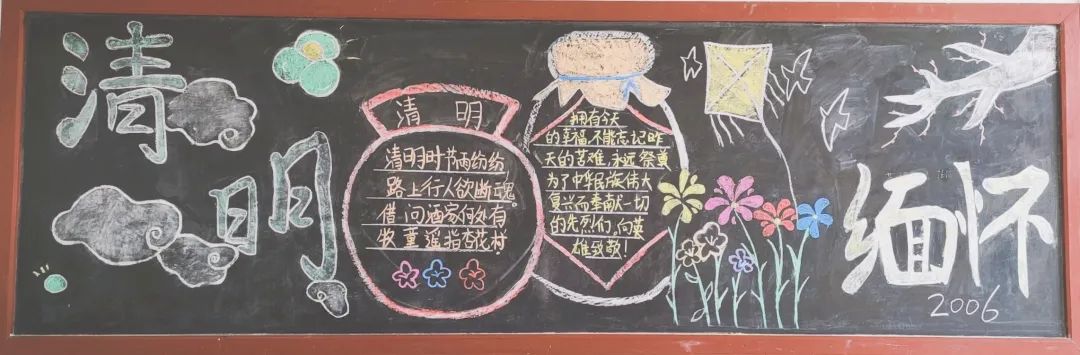 清明
清 明
清明时节雨纷纷
路上行人欲断魂
借问酒家何处有
牧童遥指杏花村
拥有今天
的幸福,不能忘记昨
天的苦难,永远祭奠
为了中华民族伟大
复兴而奉献一切
的先烈们,向英
雄致敬!
缅怀
2006